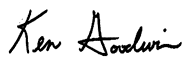 Ken Goodwin